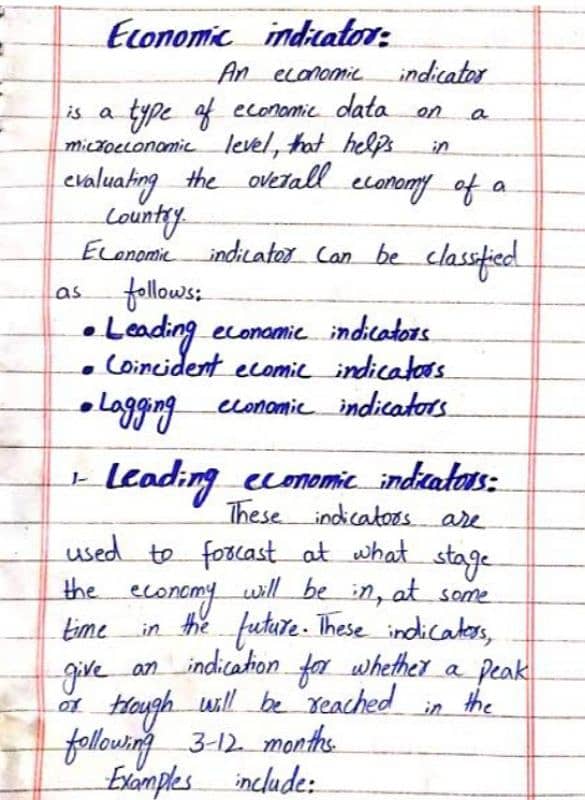 Economic indicator:
An economic indicator
is a type of economic data on a
microeconomic level, that helps in
evaluating the overall economy of a
Country.
Economic indicator can be classified
as follows:
• Leading economic indicators
• Coincident ecomic indicators
• Lagging economic indicators
1- Leading economic indicators:
These indicators are
used to forcast at what stage
the economy will be in, at some
time in the future. These indicators,
give an indication for whether a peak
or trough will be reached in the
following 3-12 months.
Examples include: